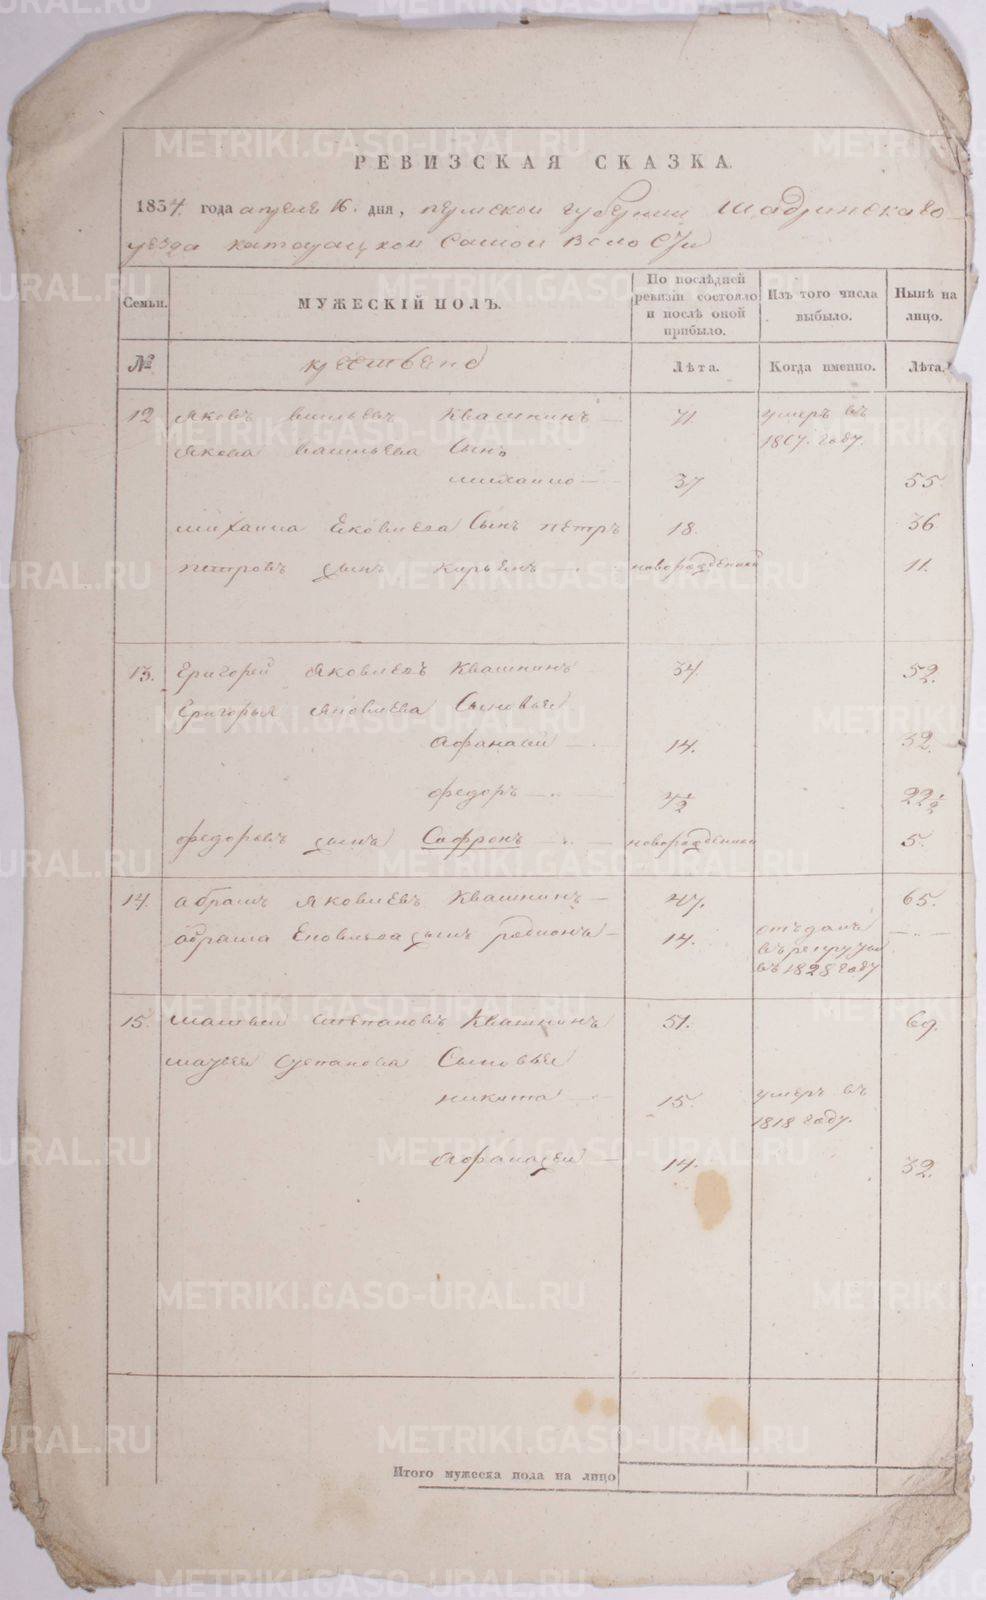 РЕВИЗСКАЯ СКАЗКА.
1834 года апреля 16. дня, пермской губернии Шадринскаго
уезда катайской самой волости
Семьи. МУЖЕСКІЙ ПОЛЪ. По послѣдней ревизіи состояло и послѣ оной прибыло. Изъ того числа выбыло. Нынѣ на лицо.
№ Лѣта. Когда именно. Лѣта.
12 Яковъ васильевъ Квашнинъ 71. умеръ въ
1817. году.
Якова васильева Сынъ
михаило 37 55
михаила Яковлева Сынъ петръ 18. 36
петровъ сынъ новорожденной 11.
13. Григорей Яковлевъ Квашнинъ 34. 52.
Григорья Яковлева Сыновья
Афанасий 14. 32.
федоръ 4½ 22½
федоровъ сынъ Сафронъ новорожденной 5.
14. абрамъ Яковлевъ Квашнинъ 47. 65.
абрама Яковлева сынъ родионъ 14. отъданъ
въ рекруты
въ 1828 году
15. матвей степановъ Квашнинъ 51. 69.
матвея степанова Сыновья
никита 15. умеръ въ
1818 году.
Афанасей 14. 32.
Итого мужеска пола на лицо
METRIKI.GASO-URAL.RU